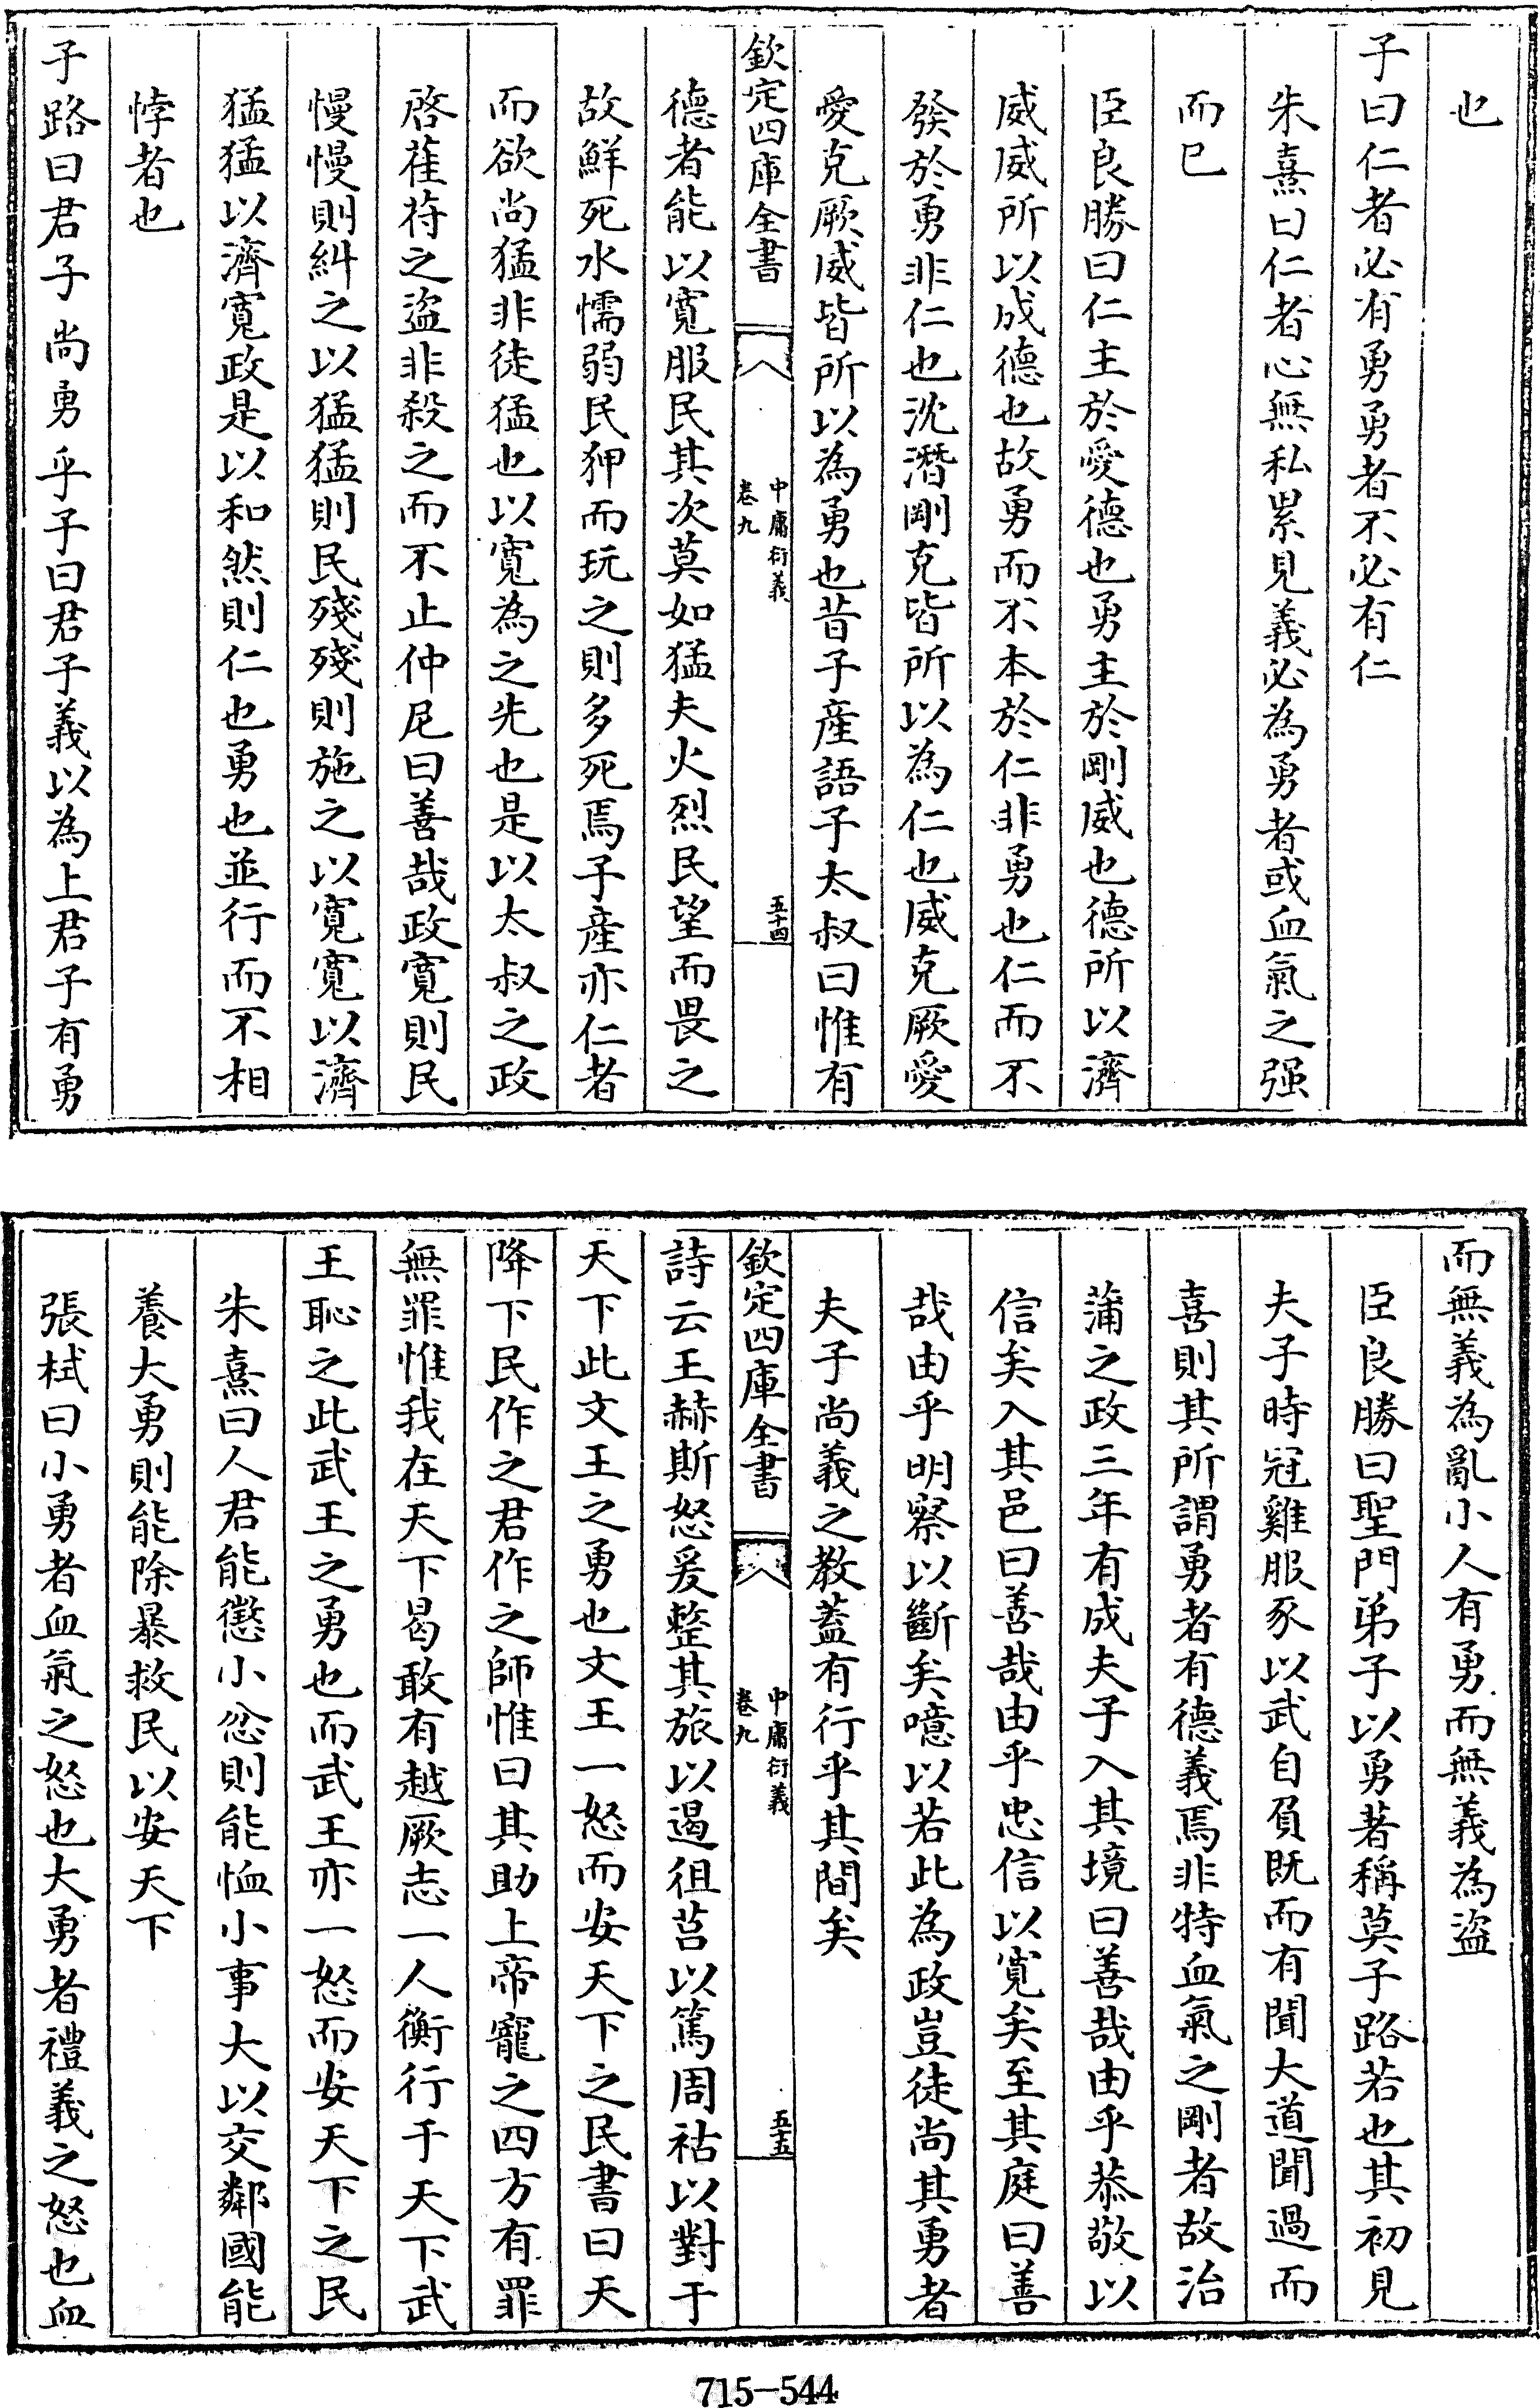 也
子曰仁者必有勇勇者不必有仁
朱熹曰仁者心無私累見義必為勇者或血氣之强
而已
臣良勝曰仁主於愛德也勇主於剛威也德所以濟
威威所以成德也故勇而不本於仁非勇也仁而不
發於勇非仁也沈潛剛克皆所以為仁也威克厥愛
愛克厥威皆所以為勇也昔子産語子太叔曰惟有
欽定四庫全書
中庸衍義
卷九
五十四
德者能以寛服民其次莫如猛夫火烈民望而畏之
故鮮死水懦弱民狎而玩之則多死焉子産亦仁者
而欲尚猛非徒猛也以寛為之先也是以太叔之政
啓萑苻之盜非殺之而不止仲尼曰善哉政寛則民
慢慢則糾之以猛猛則民殘殘則施之以寛寛以濟
猛猛以濟寛政是以和然則仁也勇也並行而不相
悖者也
子路曰君子尚勇乎子曰君子義以為上君子有勇
而無義為亂小人有勇而無義為盜
臣良勝曰聖門弟子以勇著稱莫子路若也其初見
夫子時冠雞服豕以武自負既而有聞大道聞過而
喜則其所謂勇者有德義焉非特血氣之剛者故治
蒲之政三年有成夫子入其境曰善哉由乎恭敬以
信矣入其邑曰善哉由乎忠信以寛矣至其庭曰善
哉由乎明察以斷矣噫以若此為政豈徒尚其勇者
夫子尚義之教蓋有行乎其間矣
欽定四庫全書
中庸衍義
卷九
五十五
詩云王赫斯怒爰整其旅以遏徂莒以篤周祜以對于
天下此文王之勇也文王一怒而安天下之民書曰天
降下民作之君作之師惟曰其助上帝寵之四方有罪
無罪惟我在天下曷敢有越厥志一人衡行于天下武
王恥之此武王之勇也而武王亦一怒而安天下之民
朱熹曰人君能懲小忿則能恤小事大以交鄰國能
養大勇則能除暴救民以安天下
張栻曰小勇者血氣之怒也大勇者禮義之怒也血
715-544